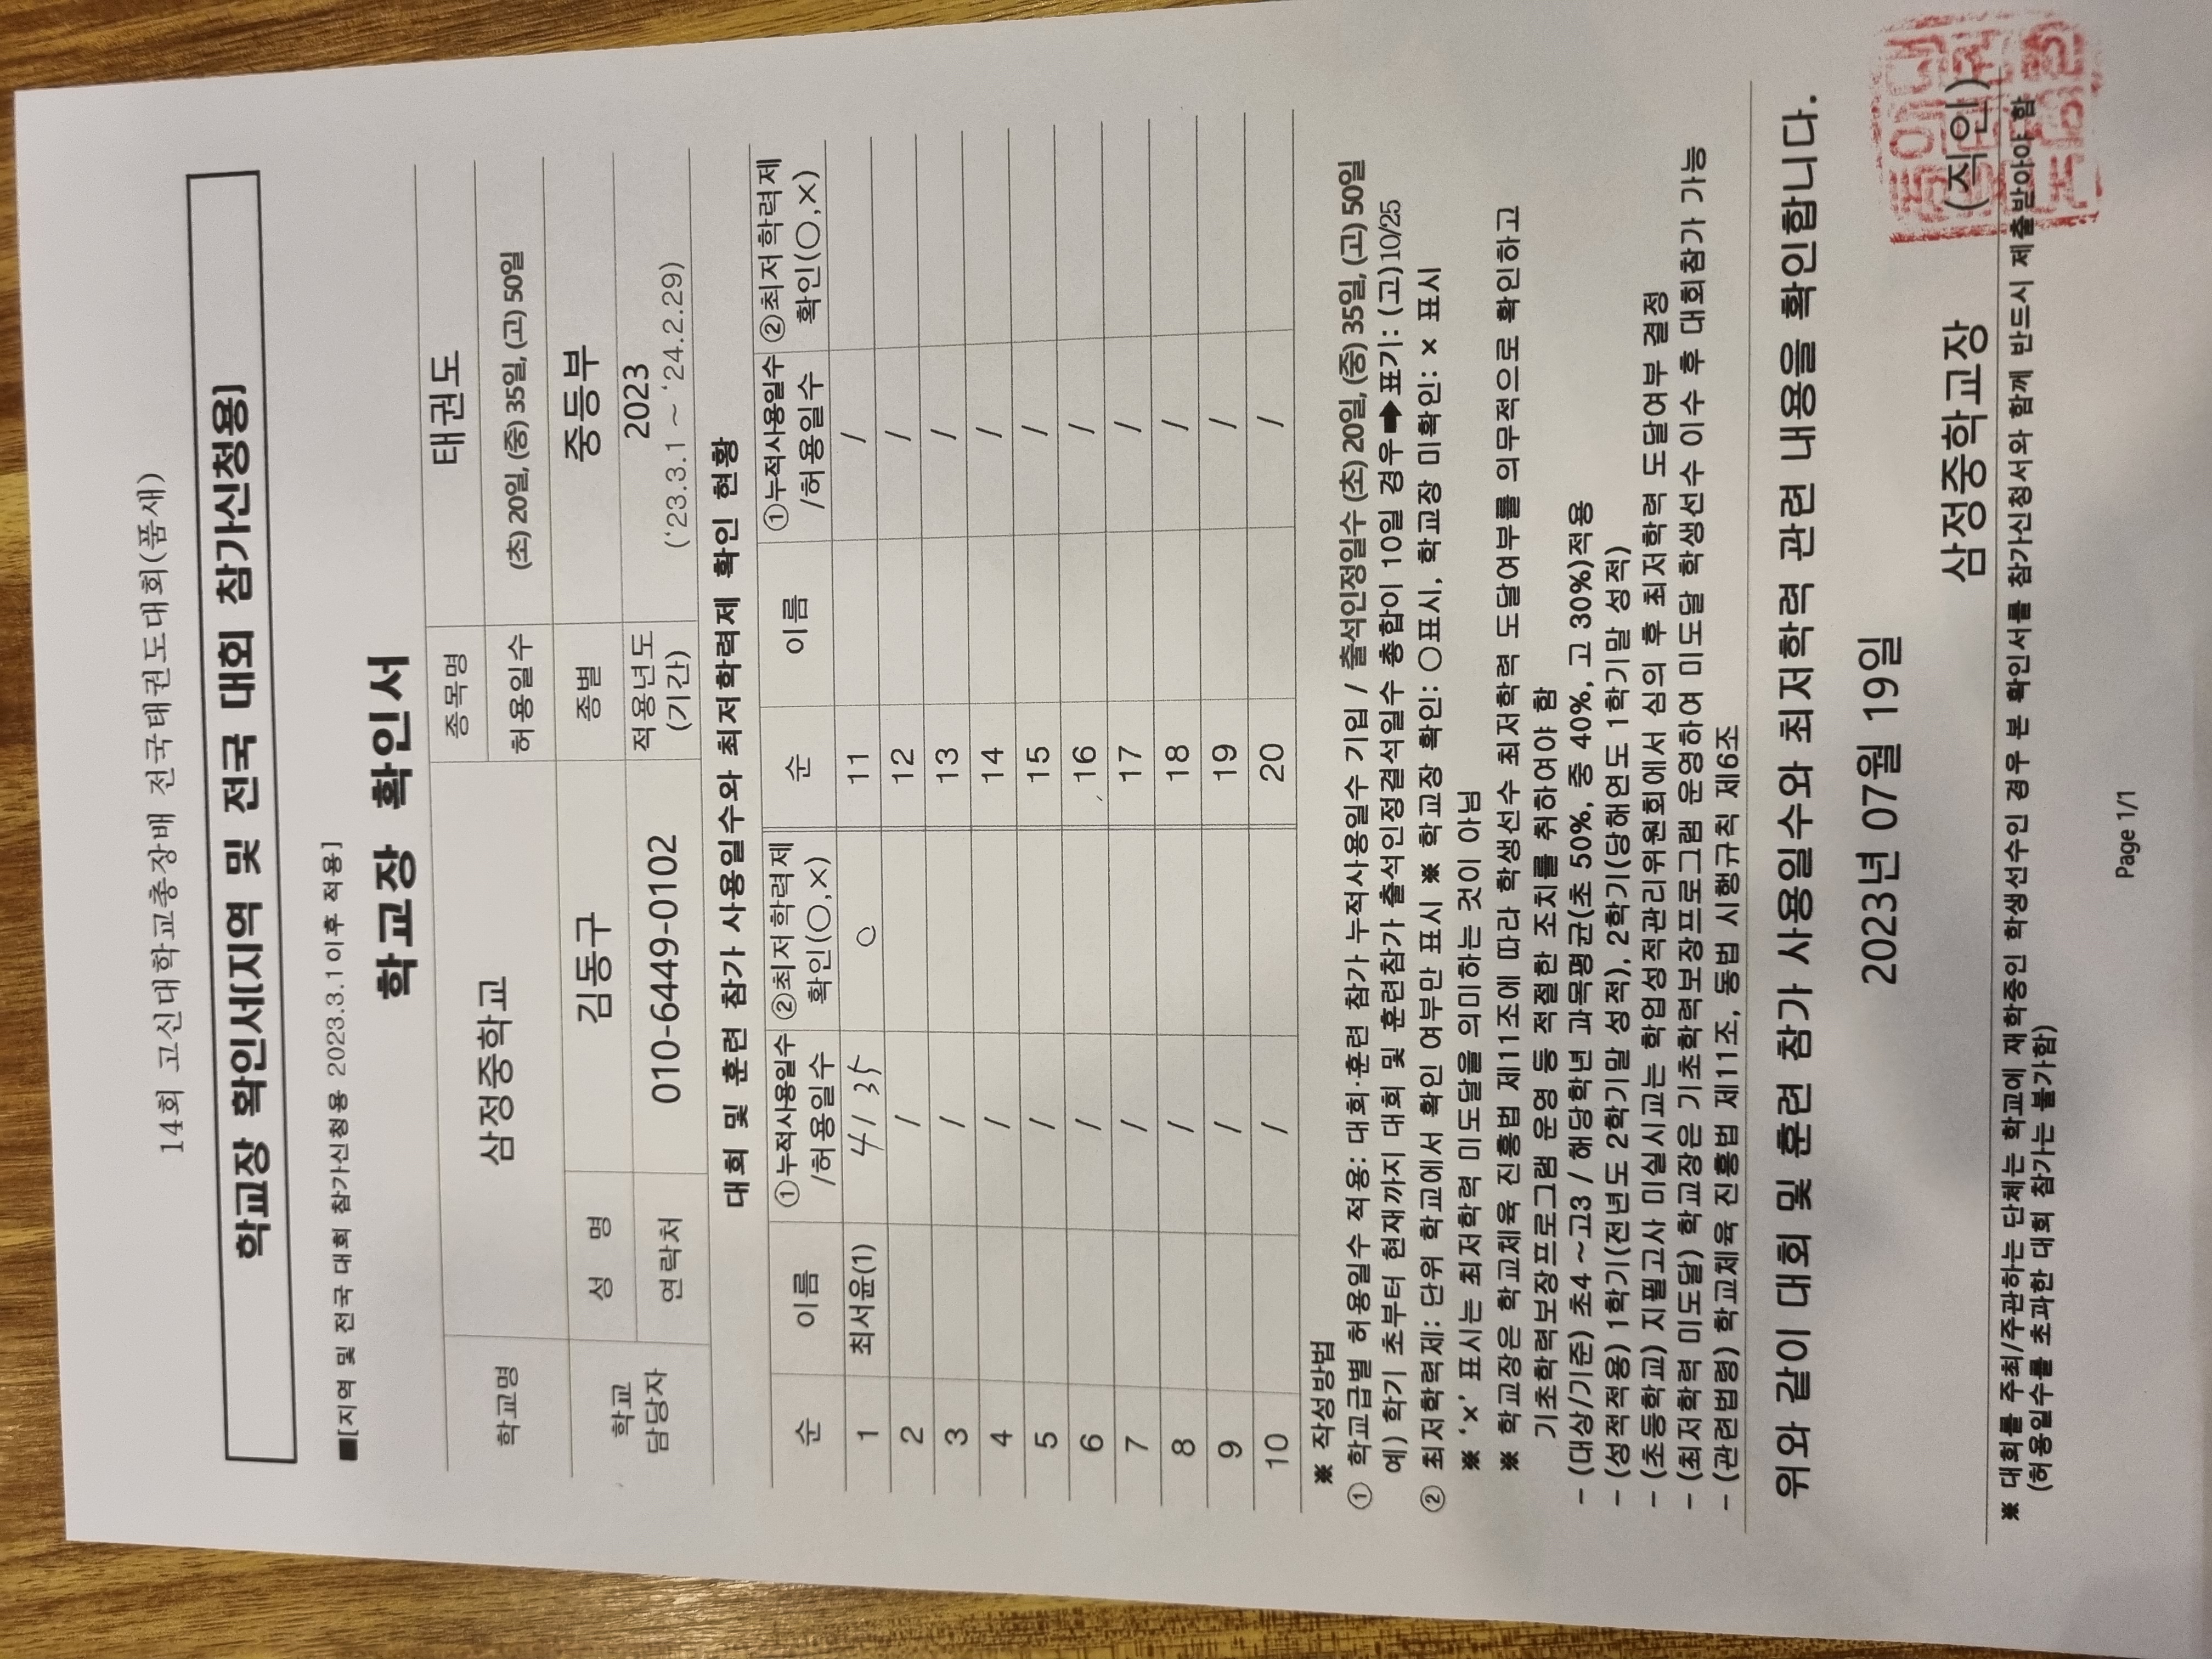 14회 고신대학교총장배 전국태권도대회(품새)
학교장 확인서[지역 및 전국 대회 참가신청용]
■[지역 및 전국 대회 참가신청용 2023.3.1이후 적용]
학교장 확인서
학교명 삼정중학교 종목명 태권도
허용일수 (초) 20일, (중) 35일, (고) 50일
학교 담당자 성 명 김동구 종별 중등부
연락처 010-6449-0102 적용년도 (기간) 2023 ('23.3.1 ~ '24.2.29)
대회 및 훈련 참가 사용일수와 최저학력제 확인 현황
순 이름 ①누적사용일수 /허용일수 ②최저학력제 확인(○,×) 순 이름 ①누적사용일수 /허용일수 ②최저학력제 확인(○,×)
1 최서윤(1) 4 / 35 ○ 11 /
2 / 12 /
3 / 13 /
4 / 14 /
5 / 15 /
6 / 16 /
7 / 17 /
8 / 18 /
9 / 19 /
10 / 20 /
※ 작성방법
① 학교급별 허용일수 적용: 대회·훈련 참가 누적사용일수 기입 / 출석인정일수 (초) 20일, (중) 35일, (고) 50일
예) 학기 초부터 현재까지 대회 및 훈련참가 출석인정결석일수 총합이 10일 경우 ➡ 표기: (고)10/25
② 최저학력제: 단위 학교에서 확인 여부만 표시 ※ 학교장 확인: ○표시, 학교장 미확인: × 표시
※ '×' 표시는 최저학력 미도달을 의미하는 것이 아님
※ 학교장은 학교체육 진흥법 제11조에 따라 학생선수 최저학력 도달여부를 의무적으로 확인하고
기초학력보장프로그램 운영 등 적절한 조치를 취하여야 함
- (대상/기준) 초4 ~ 고3 / 해당학년 과목평균(초 50%, 중 40%, 고 30%)적용
- (성적적용) 1학기(전년도 2학기말 성적), 2학기(당해연도 1학기말 성적)
- (초등학교) 지필고사 미실시교는 학업성적관리위원회에서 심의 후 최저학력 도달여부 결정
- (최저학력 미도달) 학교장은 기초학력보장프로그램 운영하여 미도달 학생선수 이수 후 대회참가 가능
- (관련법령) 학교체육 진흥법 제11조, 동법 시행규칙 제6조
위와 같이 대회 및 훈련 참가 사용일수와 최저학력 관련 내용을 확인합니다.
2023년 07월 19일
삼정중학교장 (직인)
※ 대회를 주최/주관하는 단체는 학교에 재학중인 학생선수인 경우 본 확인서를 참가신청서와 함께 반드시 제출받아야 함
(허용일수를 초과한 대회 참가는 불가함)
Page 1/1